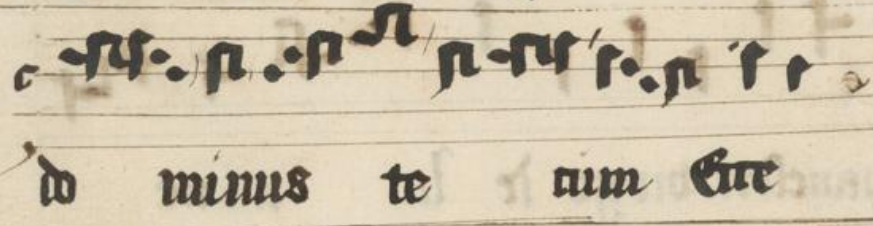 do minus te cum Ecce